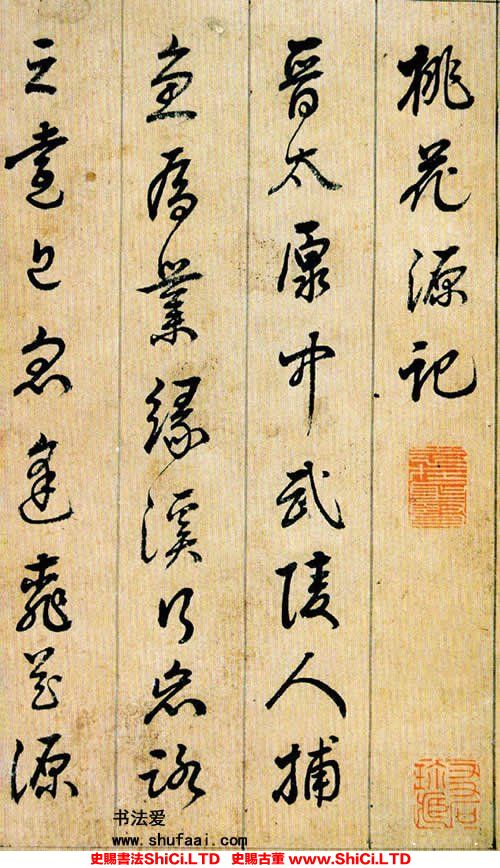 桃花源記
晉太原中武陵人捕
魚為業緣溪行忘路
之遠近忽逢桃花源
书法爱
www.shufaai.com
史賜書法ShiCi.LTD 史賜古董 www.ShiCi.LTD